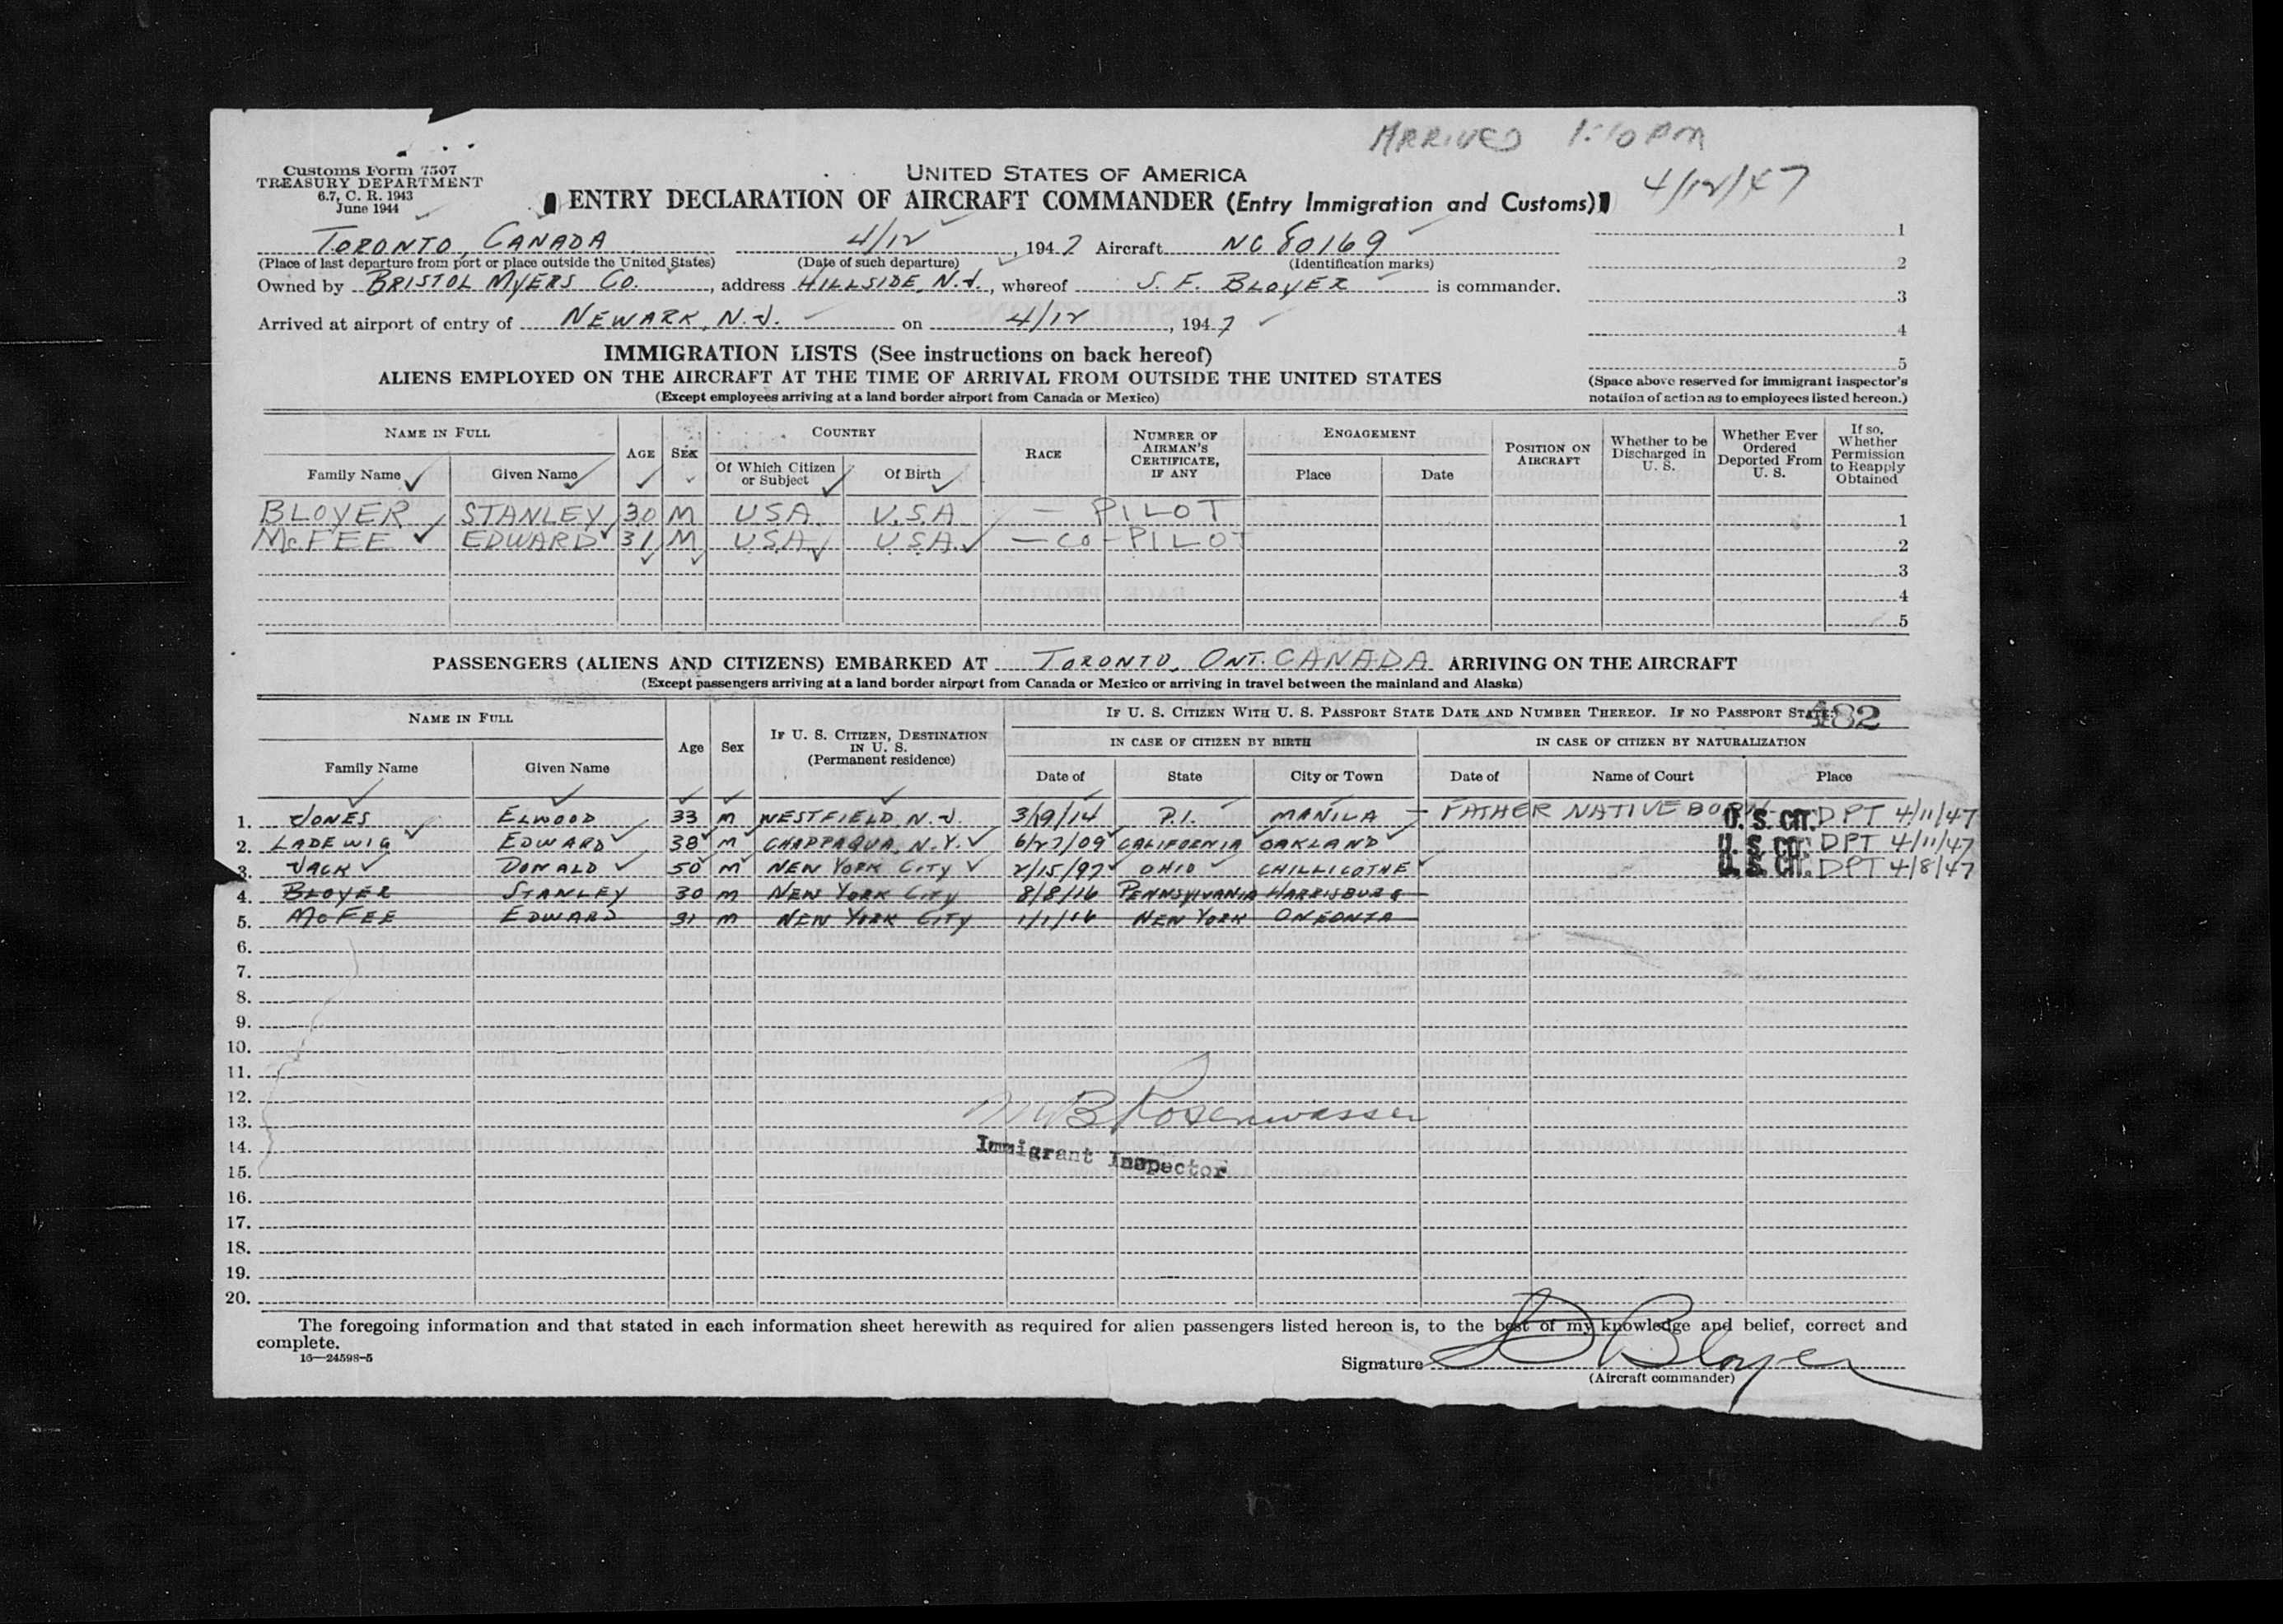 ARRIVED 1:10 PM
4/12/47
Customs Form 7507
TREASURY DEPARTMENT
6.7, C. R. 1943
June 1944
UNITED STATES OF AMERICA
ENTRY DECLARATION OF AIRCRAFT COMMANDER (Entry Immigration and Customs)
TORONTO, CANADA 4/12, 1947 Aircraft NC 80169 1
(Place of last departure from port or place outside the United States) (Date of such departure) (Identification marks) 2
Owned by BRISTOL MYERS CO., address HILLSIDE, N.J., whereof S. F. BLOYER is commander. 3
Arrived at airport of entry of NEWARK, N.J. on 4/12, 1947 4
IMMIGRATION LISTS (See instructions on back hereof) 5
ALIENS EMPLOYED ON THE AIRCRAFT AT THE TIME OF ARRIVAL FROM OUTSIDE THE UNITED STATES
(Except employees arriving at a land border airport from Canada or Mexico)
(Space above reserved for immigrant inspector's
notation of action as to employees listed hereon.)
NAME IN FULL AGE SEX COUNTRY RACE NUMBER OF AIRMAN'S CERTIFICATE, IF ANY ENGAGEMENT POSITION ON AIRCRAFT Whether to be Discharged in U. S. Whether Ever Ordered Deported From U. S. If so, Whether Permission to Reapply Obtained
Family Name Given Name Of Which Citizen or Subject Of Birth Place Date
BLOYER STANLEY 30 M USA U.S.A — PILOT 1
McFEE EDWARD 31 M U.S.A. U.S.A. — CO-PILOT 2
3
4
5
PASSENGERS (ALIENS AND CITIZENS) EMBARKED AT TORONTO, ONT. CANADA ARRIVING ON THE AIRCRAFT
(Except passengers arriving at a land border airport from Canada or Mexico or arriving in travel between the mainland and Alaska)
NAME IN FULL Age Sex IF U. S. CITIZEN, DESTINATION IN U. S. (Permanent residence) IF U. S. CITIZEN WITH U. S. PASSPORT STATE DATE AND NUMBER THEREOF. IF NO PASSPORT STATE: 482
IN CASE OF CITIZEN BY BIRTH IN CASE OF CITIZEN BY NATURALIZATION
Family Name Given Name Date of State City or Town Date of Name of Court Place
1. JONES ELWOOD 33 M WESTFIELD N.J. 3/19/14 P.I. MANILA — FATHER NATIVE BORN U. S. CIT. DPT 4/11/47
2. LADEWIG EDWARD 38 M CHAPPAQUA, N.Y. 6/27/09 CALIFORNIA OAKLAND U. S. CIT. DPT 4/11/47
3. JACK DONALD 50 M NEW YORK CITY 2/15/97 OHIO CHILLICOTHE U. S. CIT. DPT 4/8/47
4. BLOYER STANLEY 30 M NEW YORK CITY 8/8/16 PENNSYLVANIA HARRISBURG
5. McFEE EDWARD 31 M NEW YORK CITY 1/1/16 NEW YORK ONEONTA
6.
7.
8.
9.
10.
11.
12.
13. B Rosenwasser
14. Immigrant Inspector
15.
16.
17.
18.
19.
20.
The foregoing information and that stated in each information sheet herewith as required for alien passengers listed hereon is, to the best of my knowledge and belief, correct and
complete.
16—24598-5
Signature S F Bloyer
(Aircraft commander)